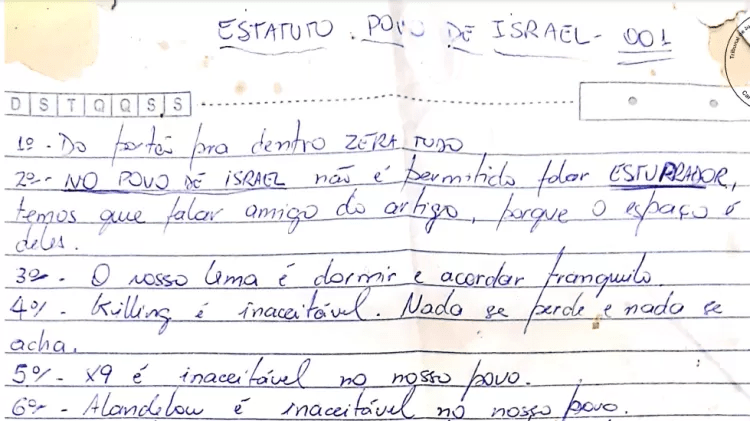 ESTATUTO. POVO DE ISRAEL - 001
D S T Q Q S S
1º - Do portão pra dentro ZERA TUDO
2º - NO POVO DE ISRAEL não é permitido falar ESTUPRADOR,
temos que falar amigo do artigo, porque o espaço é
deles.
3º - O nosso lema é dormir e acordar tranquilo.
4º - Killing é inaceitável. Nada se perde e nada se
acha.
5º - X9 é inaceitável no nosso povo.
6º - Alandelow é inaceitável no nosso povo.